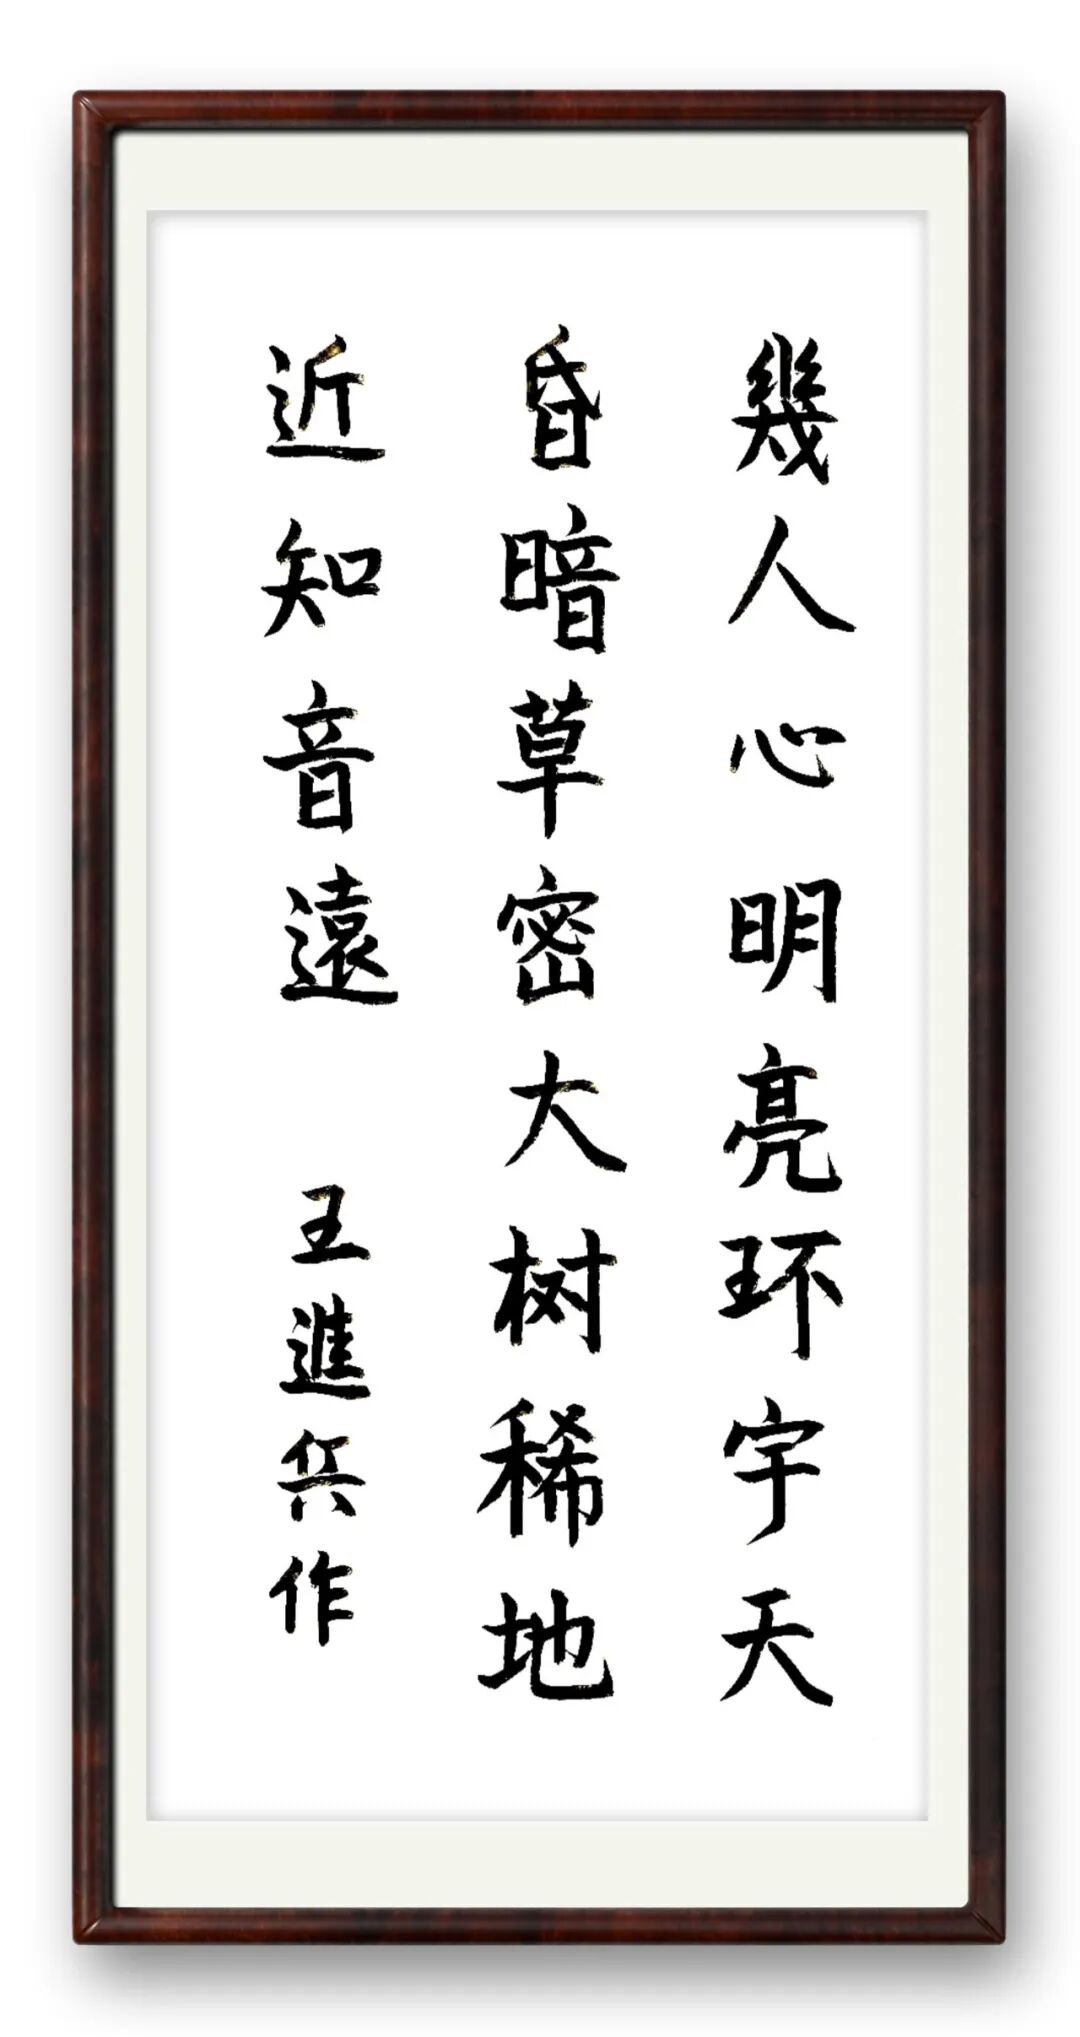 幾人心明亮环宇天
昏暗草密大树稀地
近知音遠
王進兵作